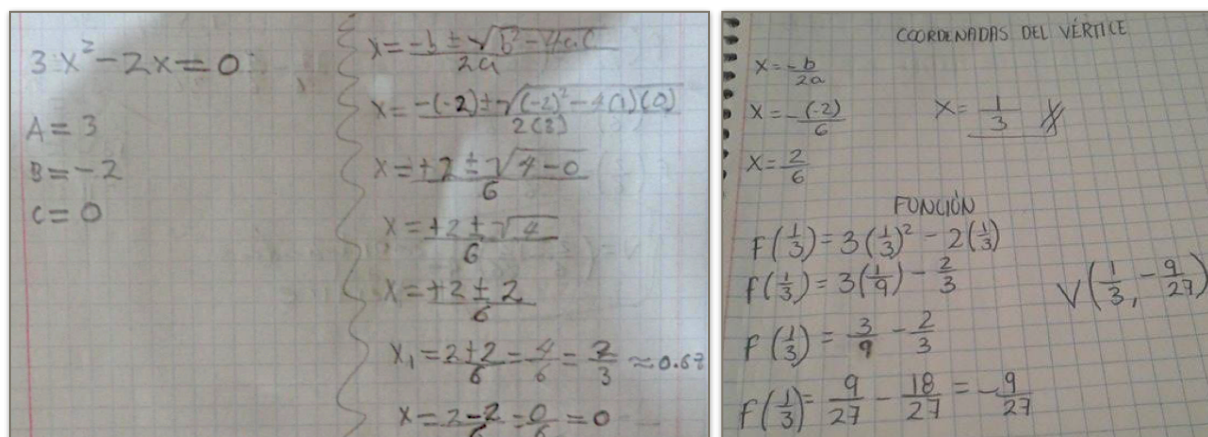 3x² - 2x = 0
A = 3
B = -2
C = 0
x = -b ± √b² - 4ac / 2a
x = -(-2) ± √(-2)² - 4(1)(0) / 2(3)
x = +2 ± √4 - 0 / 6
x = +2 ± √4 / 6
x = +2 ± 2 / 6
x₁ = 2+2/6 = 4/6 = 2/3 ≈ 0.67
x = 2-2/6 = 0/6 = 0
COORDENADAS DEL VÉRTICE
x = -b/2a
x = -(-2)/6
x = 1/3
x = 2/6
FUNCIÓN
F(1/3) = 3(1/3)² - 2(1/3)
F(1/3) = 3(1/9) - 2/3
V(1/3, -9/27)
F(1/3) = 3/9 - 2/3
F(1/3) = 9/27 - 18/27 = -9/27